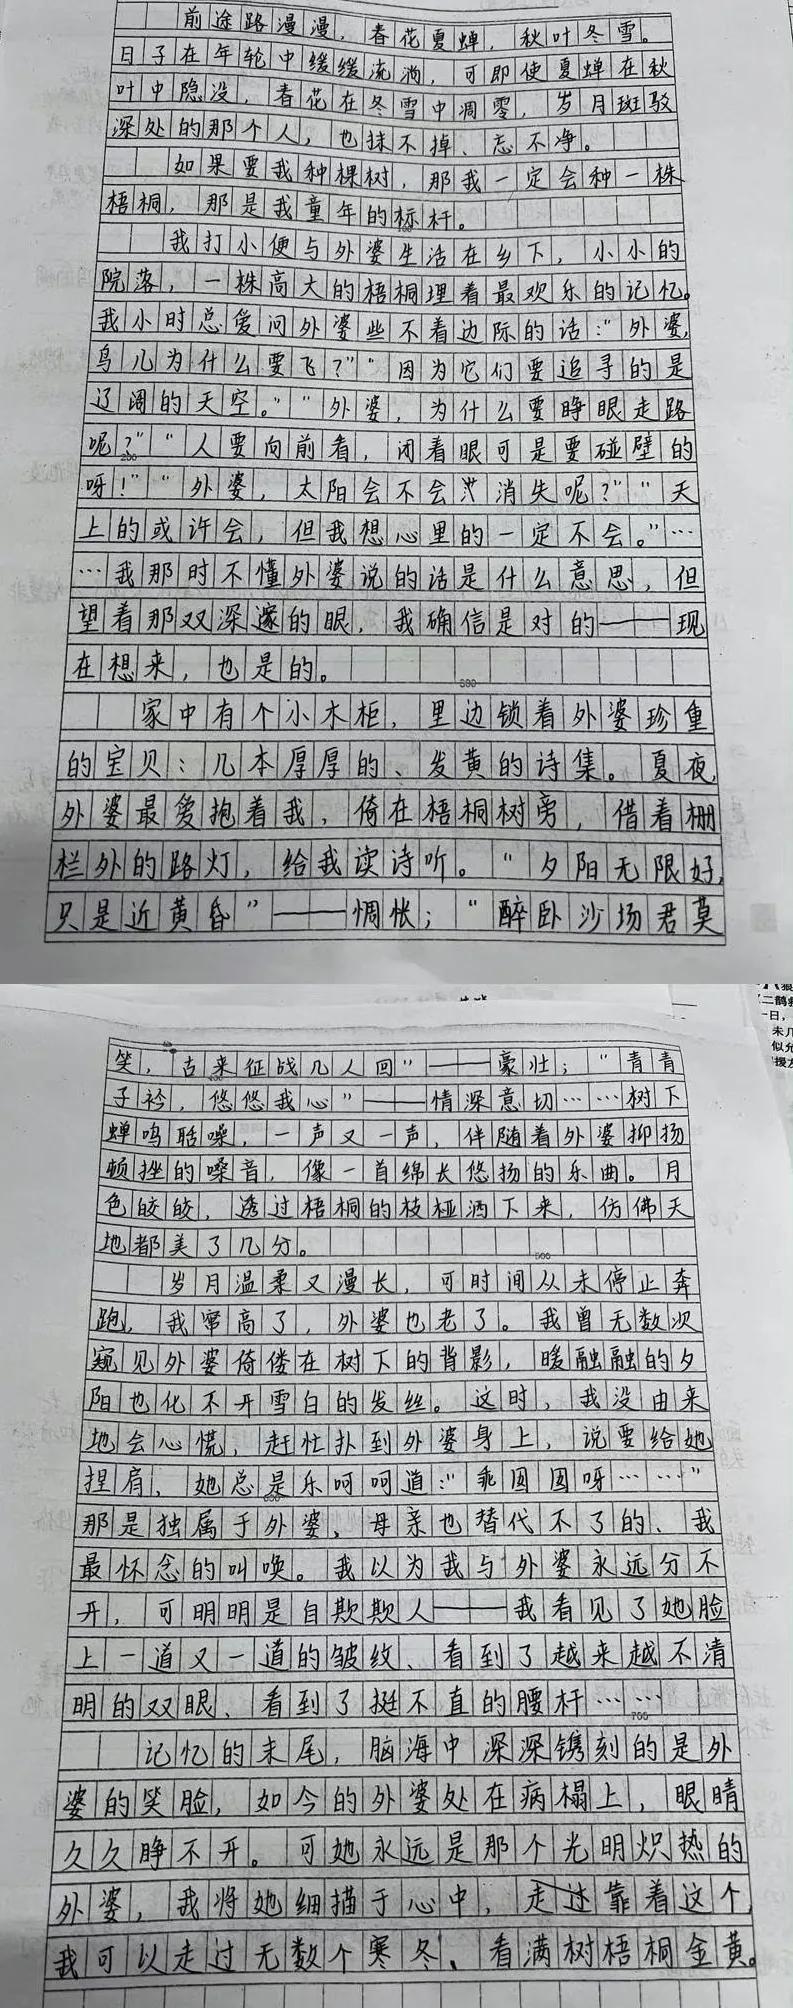 前途路漫漫，春花夏蝉，秋叶冬雪。
日子在年轮中缓缓流淌，可即使夏蝉在秋
叶中隐没，春花在冬雪中凋零，岁月斑驳
深处的那个人，也抹不掉、忘不净。
如果要我种棵树，那我一定会种一株
梧桐，那是我童年的标杆。
我打小便与外婆生活在乡下，小小的
院落，一株高大的梧桐埋着最欢乐的记忆。
我小时总爱问外婆些不着边际的话："外婆，
鸟儿为什么要飞？""因为它们要追寻的是
辽阔的天空。""外婆，为什么要睁眼走路
呢？""人要向前看，闭着眼可是要碰壁的
呀！""外婆，太阳会不会消失呢？""天
上的或许会，但我想心里的一定不会。"…
…我那时不懂外婆说的话是什么意思，但
望着那双深邃的眼，我确信是对的——现
在想来，也是的。
家中有个小木柜，里边锁着外婆珍重
的宝贝：几本厚厚的、发黄的诗集。夏夜，
外婆最爱抱着我，倚在梧桐树旁，借着栅
栏外的路灯，给我读诗听。"夕阳无限好，
只是近黄昏"——惆怅；"醉卧沙场君莫
笑，古来征战几人回"——豪壮；"青青
子衿，悠悠我心"——情深意切……树下
蝉鸣聒噪，一声又一声，伴随着外婆抑扬
顿挫的嗓音，像一首绵长悠扬的乐曲。月
色皎皎，透过梧桐的枝桠洒下来，仿佛天
地都美了几分。
岁月温柔又漫长，可时间从未停止奔
跑，我窜高了，外婆也老了。我曾无数次
窥见外婆倚偻在树下的背影，暖融融的夕
阳也化不开雪白的发丝。这时，我没由来
地会心慌，赶忙扑到外婆身上，说要给她
捏肩，她总是乐呵呵道："乖囡囡呀……"
那是独属于外婆、母亲也替代不了的、我
最怀念的叫唤。我以为我与外婆永远分不
开，可明明是自欺欺人——我看见了她脸
上一道又一道的皱纹、看到了越来越不清
明的双眼、看到了挺不直的腰杆……
记忆的末尾，脑海中深深镌刻的是外
婆的笑脸，如今的外婆处在病榻上，眼睛
久久睁不开。可她永远是那个光明炽热的
外婆，我将她细描于心中，走过靠着这个，
我可以走过无数个寒冬、看满树梧桐金黄。